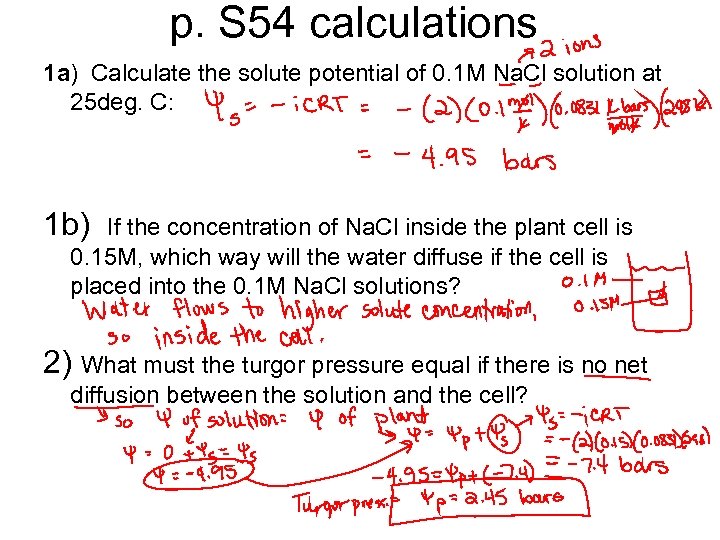 p. S 54 calculations
2 ions
1a) Calculate the solute potential of 0.1 M Na.Cl solution at
25deg. C: Ψs = - iCRT = - (2)(0.1 mol/L)(0.0831 L bars/mol K)(298 K)
= - 4.95 bars
1b) If the concentration of Na.Cl inside the plant cell is
0.15 M, which way will the water diffuse if the cell is
placed into the 0.1 M Na.Cl solutions? 0.1 M
Water flows to higher solute concentration, 0.15M
so inside the cell.
2) What must the turgor pressure equal if there is no net
diffusion between the solution and the cell?
so Ψ of solution = Ψ of plant Ψs = -iCRT
Ψ = 0 + Ψs = Ψs Ψ = Ψp + Ψs = -(2)(0.15)(0.0831)(298)
Ψ = -4.95 -4.95 = Ψp + (-7.4) = -7.4 bars
Turgor press. = Ψp = 2.45 bars